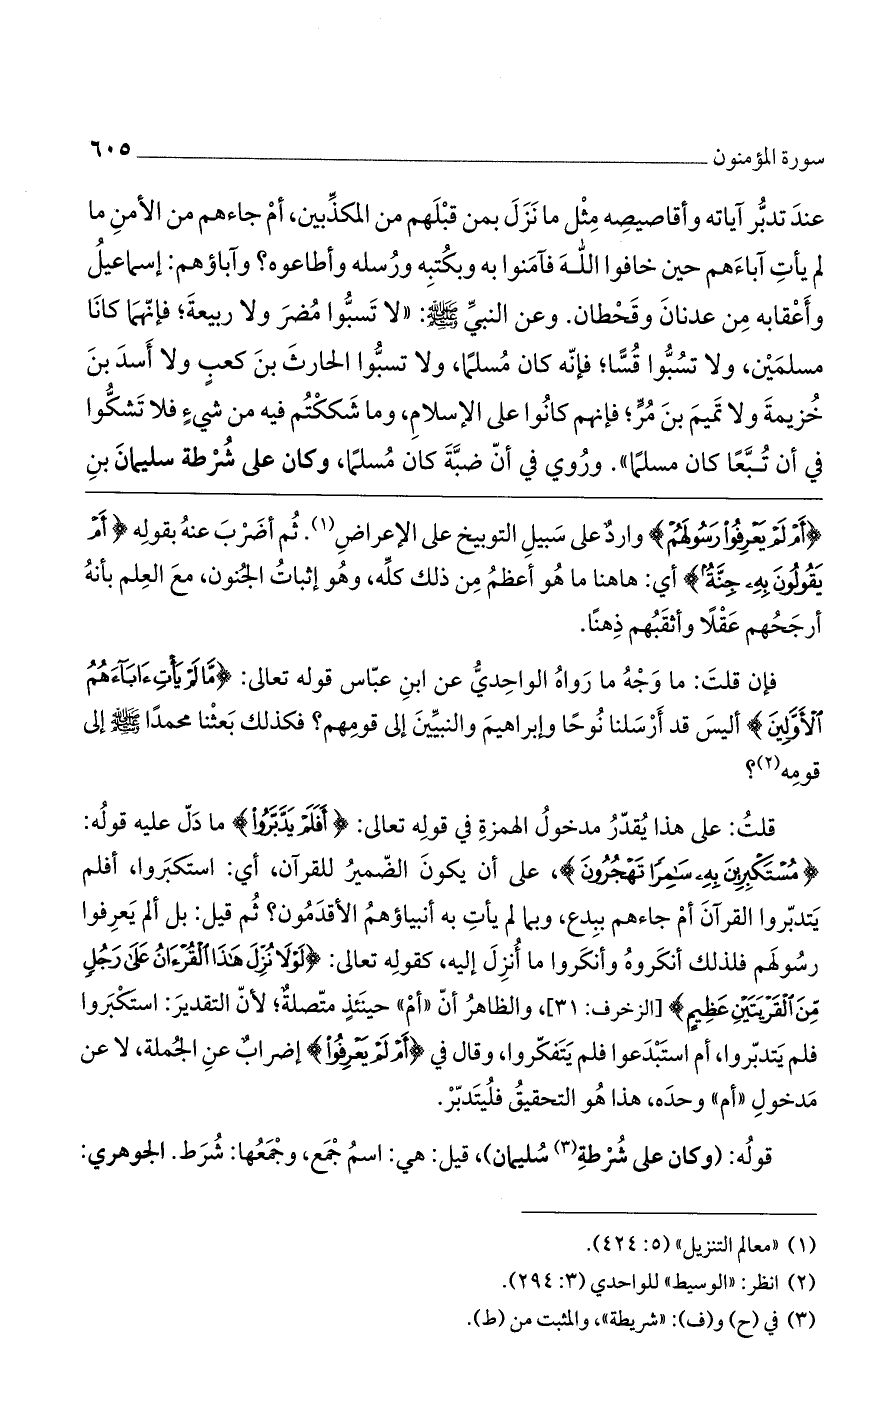 سورة المؤمنون ٦٠٥
عندَ تدبُّر آياته وأقاصيصِه مِثْل ما نَزَلَ بمن قبْلَهم من المكذِّبين، أمْ جاءهم من الأمنِ ما
لم يأتِ آباءَهم حين خافوا اللهَ فآمَنوا به وبكتُبِه ورُسله وأطاعوه؟ وآباؤهم: إسماعيلُ
وأعْقابه مِن عدنانَ وقَحْطان. وعن النبيِّ ﷺ: «لا تَسبُّوا مُضرَ ولا ربيعةَ؛ فإنّهما كانَا
مسلمَيْن، ولا تسُبُّوا قُسًّا؛ فإنّه كان مُسلمًا، ولا تسبُّوا الحارثَ بنَ كعبٍ ولا أسدَ بنَ
خُزيمةَ ولا تَميمَ بنَ مُرٍّ؛ فإنهم كانُوا على الإسلامِ، وما شَككْتُم فيه من شيءٍ فلا تَشكُّوا
في أن تُبَّعًا كان مسلمًا». ورُوي في أنّ ضبَّةَ كان مُسلمًا، وكان على شُرْطة سليمانَ بنِ
﴿أَمْ لَمْ يَعْرِفُوا۟ رَسُولَهُمْ﴾ واردٌ على سَبيلِ التوبيخ على الإعراضِ(١). ثُم أضَرْبَ عنهُ بقولِه ﴿أَمْ
يَقُولُونَ بِهِۦ جِنَّةٌۢ﴾ أي: هاهنا ما هُو أعظمُ مِن ذلك كلِّه، وهُو إثباتُ الجُنون، معَ العِلم بأنهُ
أرجَحُهم عَقْلًا وأثقَبُهم ذِهنًا.
فإن قلتَ: ما وَجْهُ ما رَواهُ الواحِديُّ عن ابنِ عبّاس قوله تعالى: ﴿مَّا لَمْ يَأْتِ ءَابَآءَهُمُ
ٱلْأَوَّلِينَ﴾ أليسَ قد أرْسَلنا نُوحًا وإبراهيمَ والنبيِّينَ إلى قومِهم؟ فكذلك بَعثْنا محمدًا ﷺ إلى
قومِه(٢)؟
قلتُ: على هذا يُقدّرُ مدخولُ الهمزةِ في قولِه تعالى: ﴿أَفَلَمْ يَدَّبَّرُوا۟﴾ ما دَلّ عليه قولُه:
﴿مُسْتَكْبِرِينَ بِهِۦ سَٰمِرًا تَهْجُرُونَ﴾، على أن يكونَ الضّميرُ للقرآن، أي: استكبَروا، أفلم
يَتدبّروا القرآنَ أمْ جاءهم ببِدع، وبما لم يأتِ به أنبياؤهمُ الأقدَمُون؟ ثُم قيل: بل ألم يَعرِفوا
رسُولَهم فلذلك أنكَروهُ وأنكَروا ما أُنزِلَ إليه، كقولِه تعالى: ﴿لَوْلَا نُزِّلَ هَٰذَا ٱلْقُرْءَانُ عَلَىٰ رَجُلٍ
مِّنَ ٱلْقَرْيَتَيْنِ عَظِيمٍ﴾ [الزخرف: ٣١]، والظاهرُ أنّ «أمْ» حينَئذٍ متّصلةٌ؛ لأنّ التقديرَ: استكْبَروا
فلم يَتدبّروا، أم استَبْدَعوا فلم يَتفكّروا، وقال في ﴿أَمْ لَمْ يَعْرِفُوا۟﴾ إضرابٌ عنِ الجُملة، لا عن
مَدخولِ «أم» وحدَه، هذا هُو التحقيقُ فلْيُتدبّرْ.
قولُه: (وكان على شُرْطةِ(٣) سُليمان)، قيل: هي: اسمُ جْمَع، وجْمَعُها: شُرَط. الجوهري:
(١) «معالم التنزيل» (٥: ٤٢٤).
(٢) انظر: «الوسيط» للواحدي (٣: ٢٩٤).
(٣) في (ح) و(ف): «شريطة»، والمثبت من (ط).